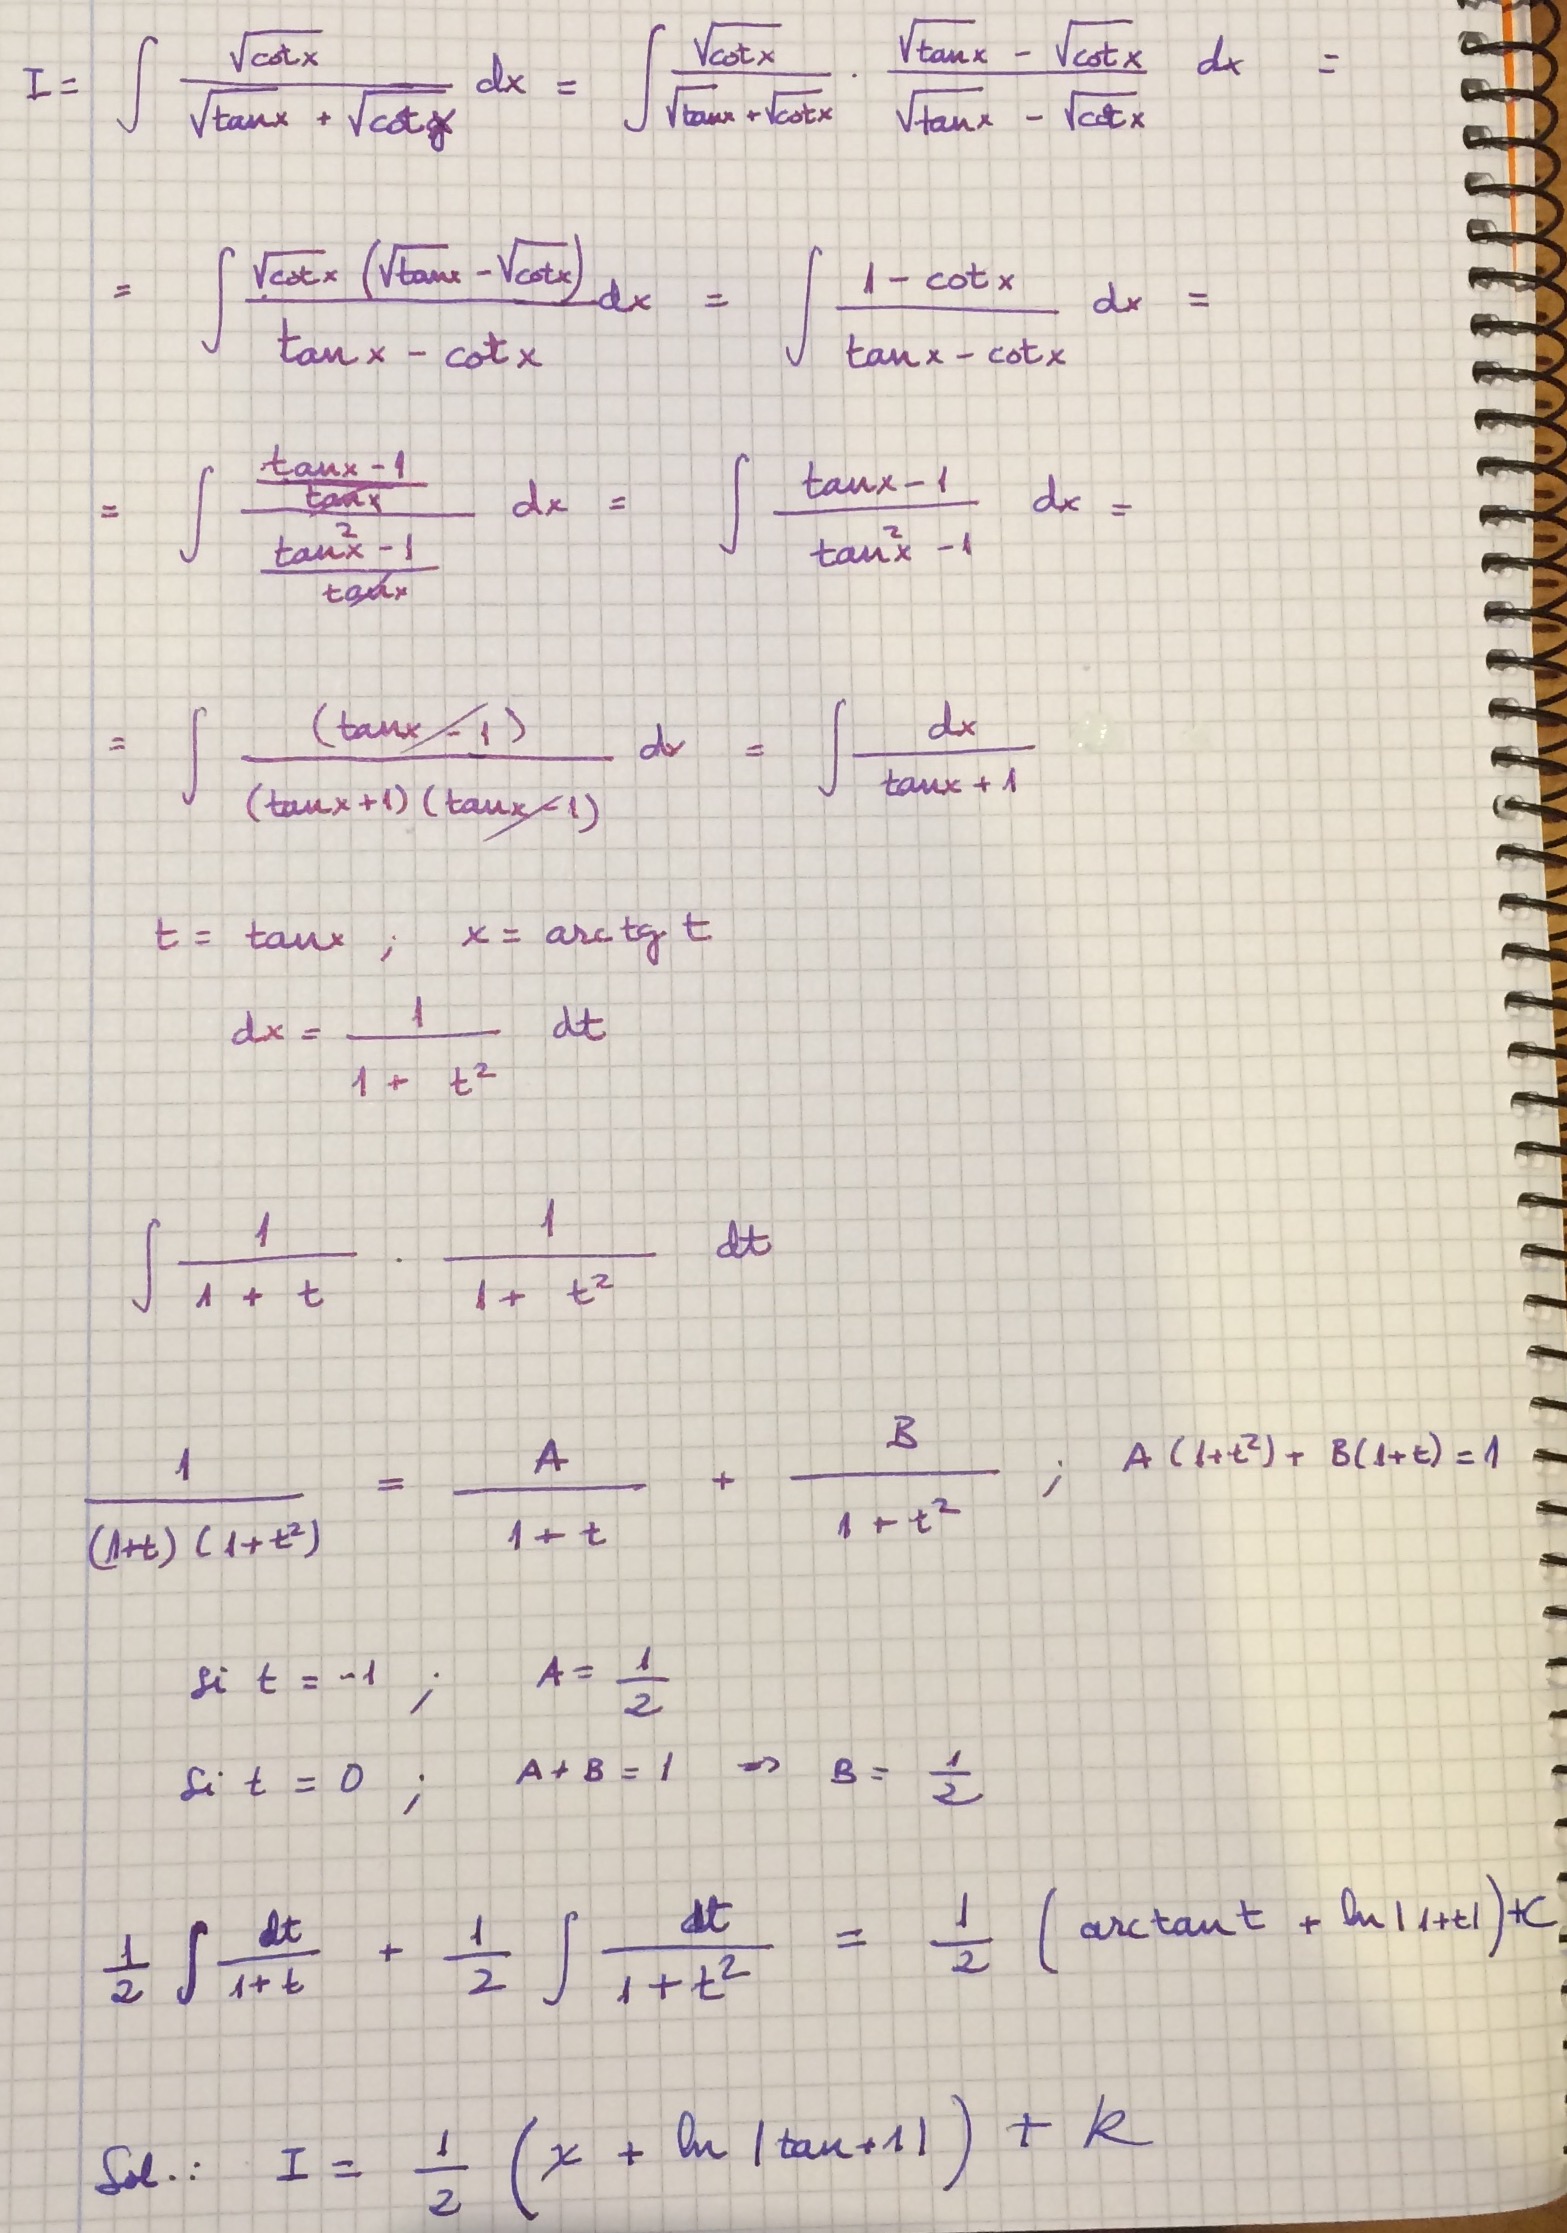 I = ∫ √cot x / (√tan x + √cot x) dx = ∫ √cot x / (√tan x + √cot x) · (√tan x - √cot x) / (√tan x - √cot x) dx =
= ∫ √cot x (√tan x - √cot x) / (tan x - cot x) dx = ∫ (1 - cot x) / (tan x - cot x) dx =
= ∫ ((tan x - 1) / tan x) / ((tan² x - 1) / tan x) dx = ∫ (tan x - 1) / (tan² x - 1) dx =
= ∫ (tan x - 1) / ((tan x + 1) (tan x - 1)) dx = ∫ dx / (tan x + 1)
t = tan x ; x = arctg t
dx = 1 / (1 + t²) dt
∫ 1 / (1 + t) · 1 / (1 + t²) dt
1 / ((1+t) (1+t²)) = A / (1 + t) + B / (1 + t²) ; A (1+t²) + B(1+t) = 1
Si t = -1 ; A = 1/2
Si t = 0 ; A + B = 1 => B = 1/2
1/2 ∫ dt / (1+t) + 1/2 ∫ dt / (1+t²) = 1/2 (arctan t + ln |1+t|) + C
Sol.: I = 1/2 (x + ln |tan+1|) + k